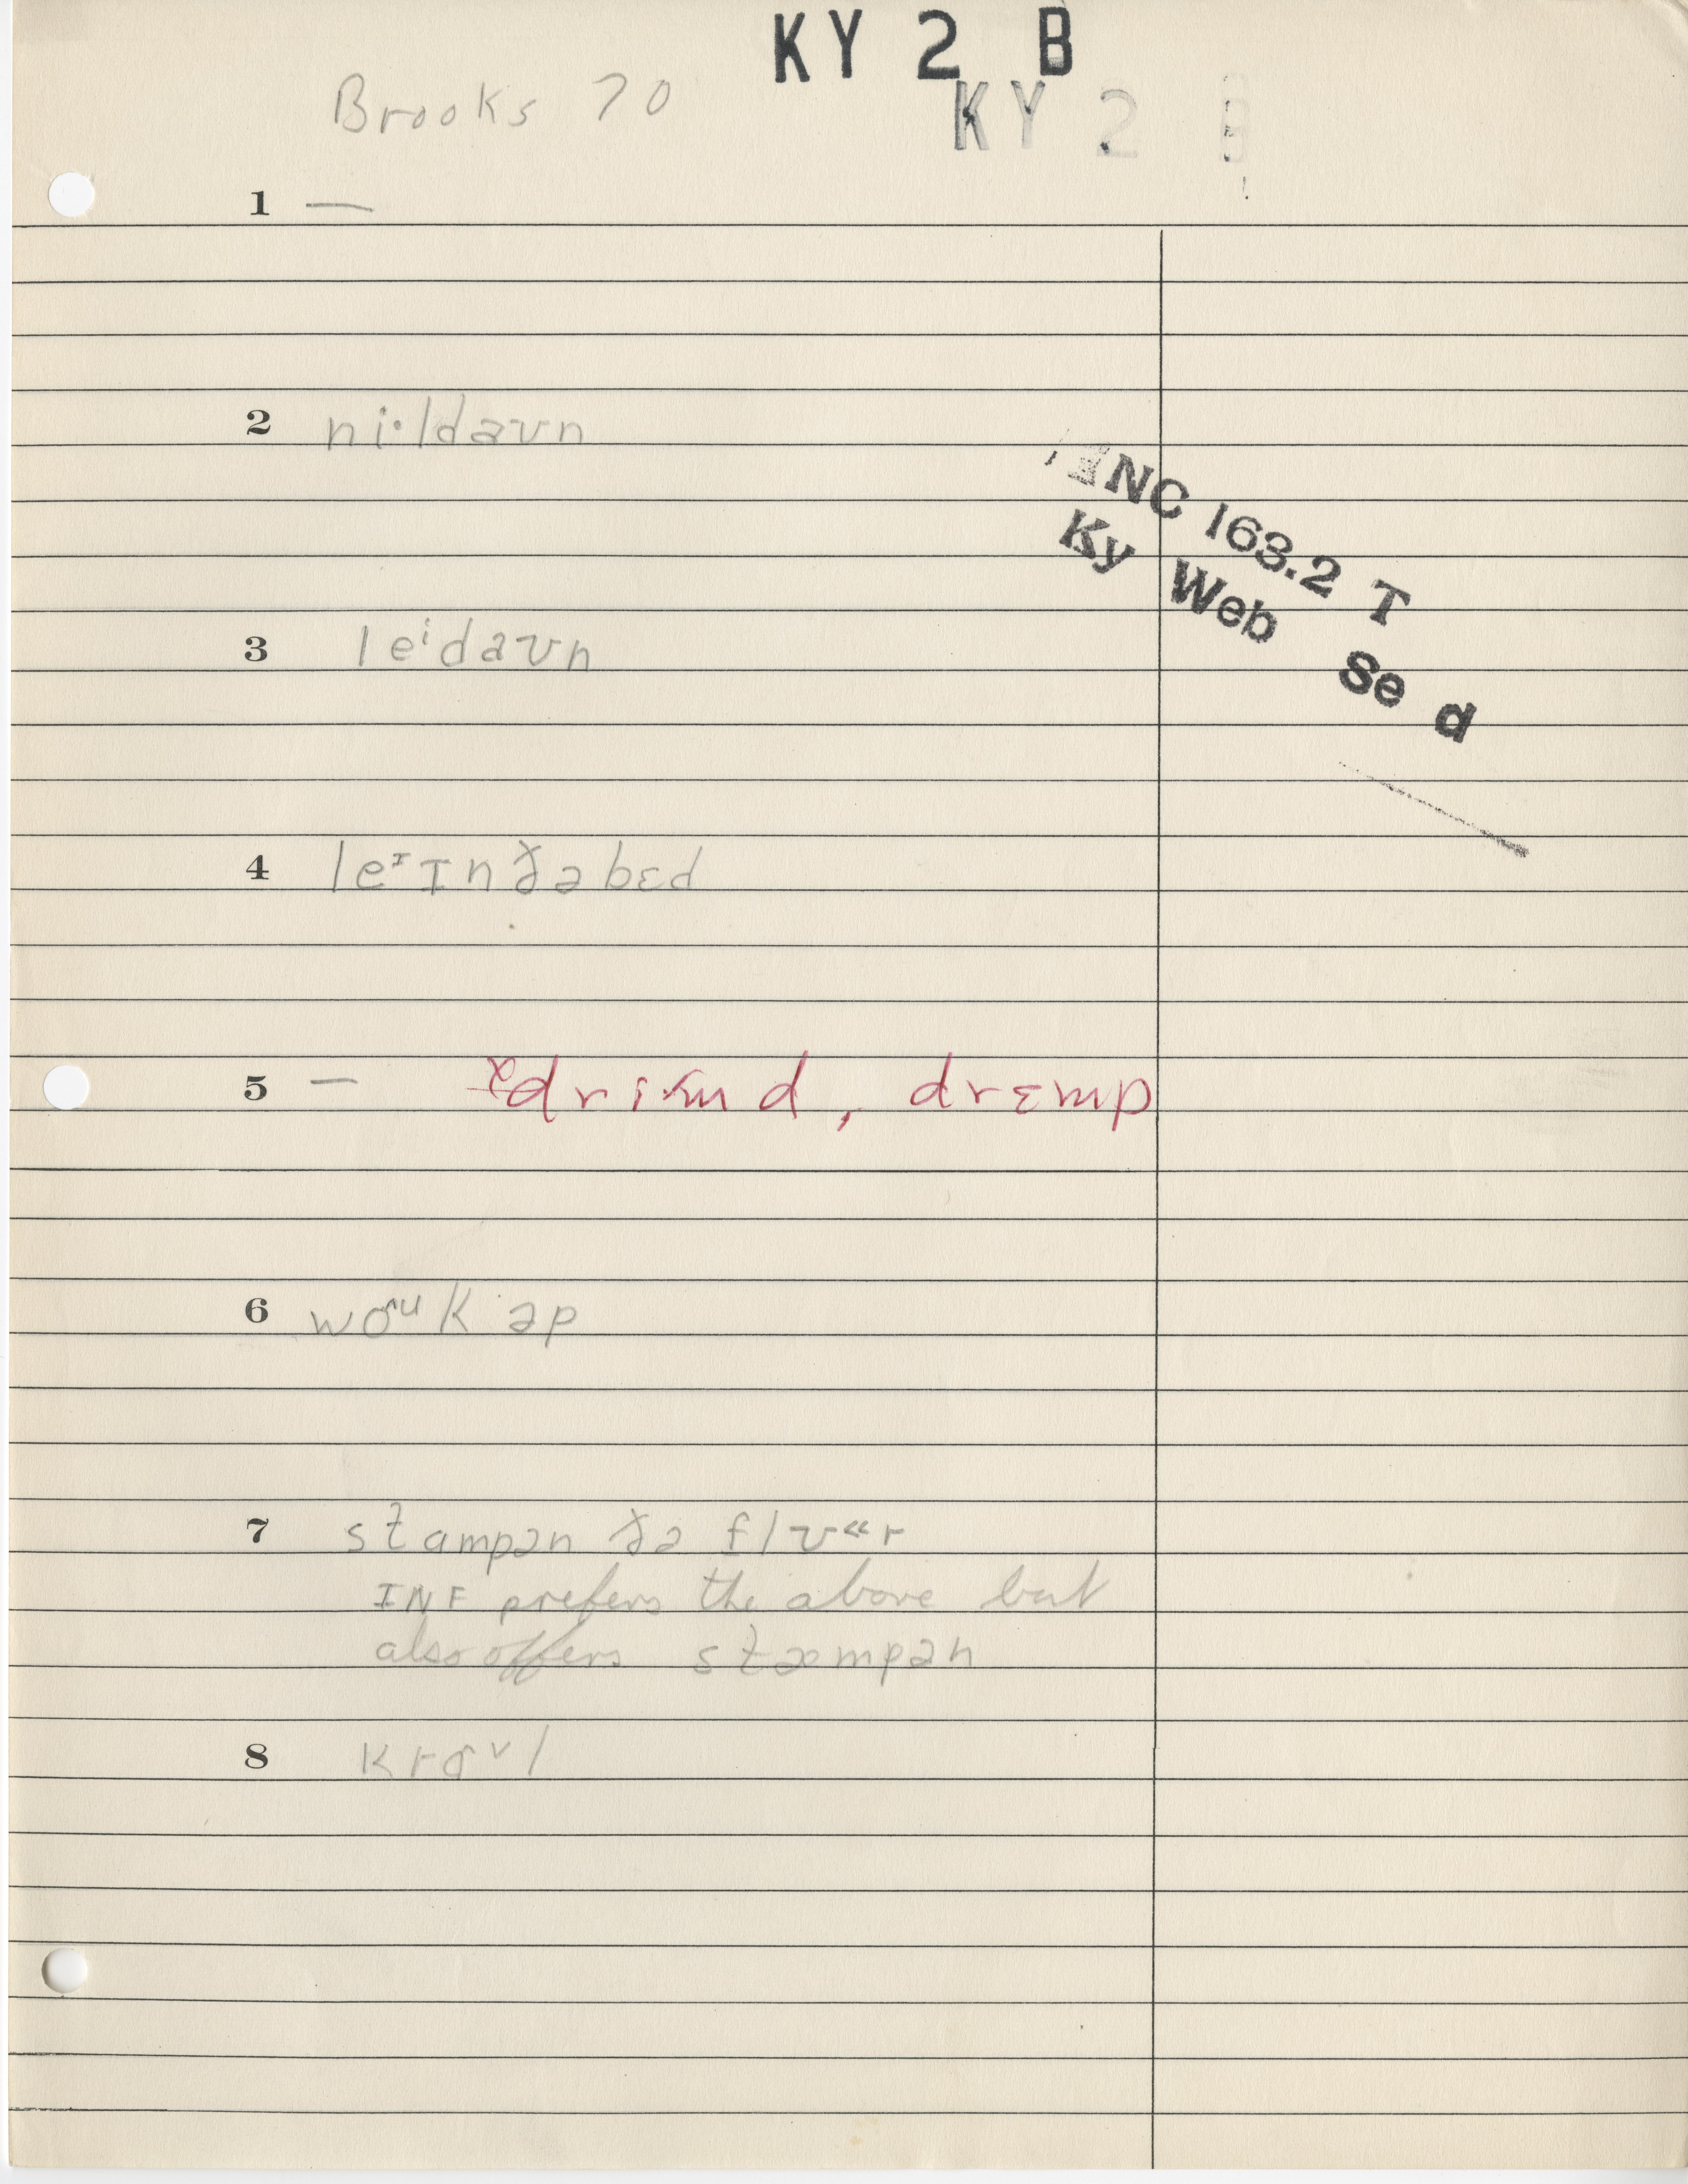 KY 2 B
Brooks 70
KY 2 B
1 —
2 ni·ldaʊn
ENC 163.2 T
Ky Web Se d
3 leⁱdaʊn
4 leᶦɪnðəbɛd
5 — drimd, drɛmp
6 woᶷk əp
7 stampən ðə flʊ«r
INF prefers the above but
also offers stæmpən
8 krɔᵛl